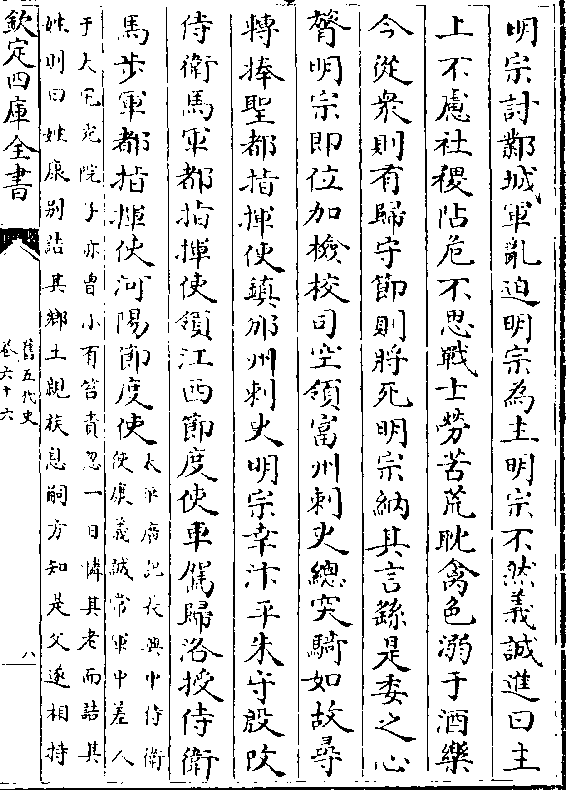 明宗討鄴城軍亂迫明宗為主明宗不然義誠進曰主
上不慮社稷阽危不思戰士勞苦荒耽禽色溺于酒樂
今從衆則有歸守節則將死明宗納其言繇是委之心
膂明宗即位加檢校司空領富州刺史總突騎如故尋
轉捧聖都指揮使鎮邠州刺史明宗幸汴平朱守殷改
侍衛馬軍都指揮使領江西節度使車駕歸洛授侍衛
馬步軍都指揮使河陽節度使
太平廣記長興中侍衛
使康義誠常軍中差人
于大宅充院子亦曾小有笞責忽一日憐其老而詰其
姓則曰姓康别詰其鄉土親族息嗣方知是父遂相持
欽定四庫全書
舊五代史
卷六十六
八